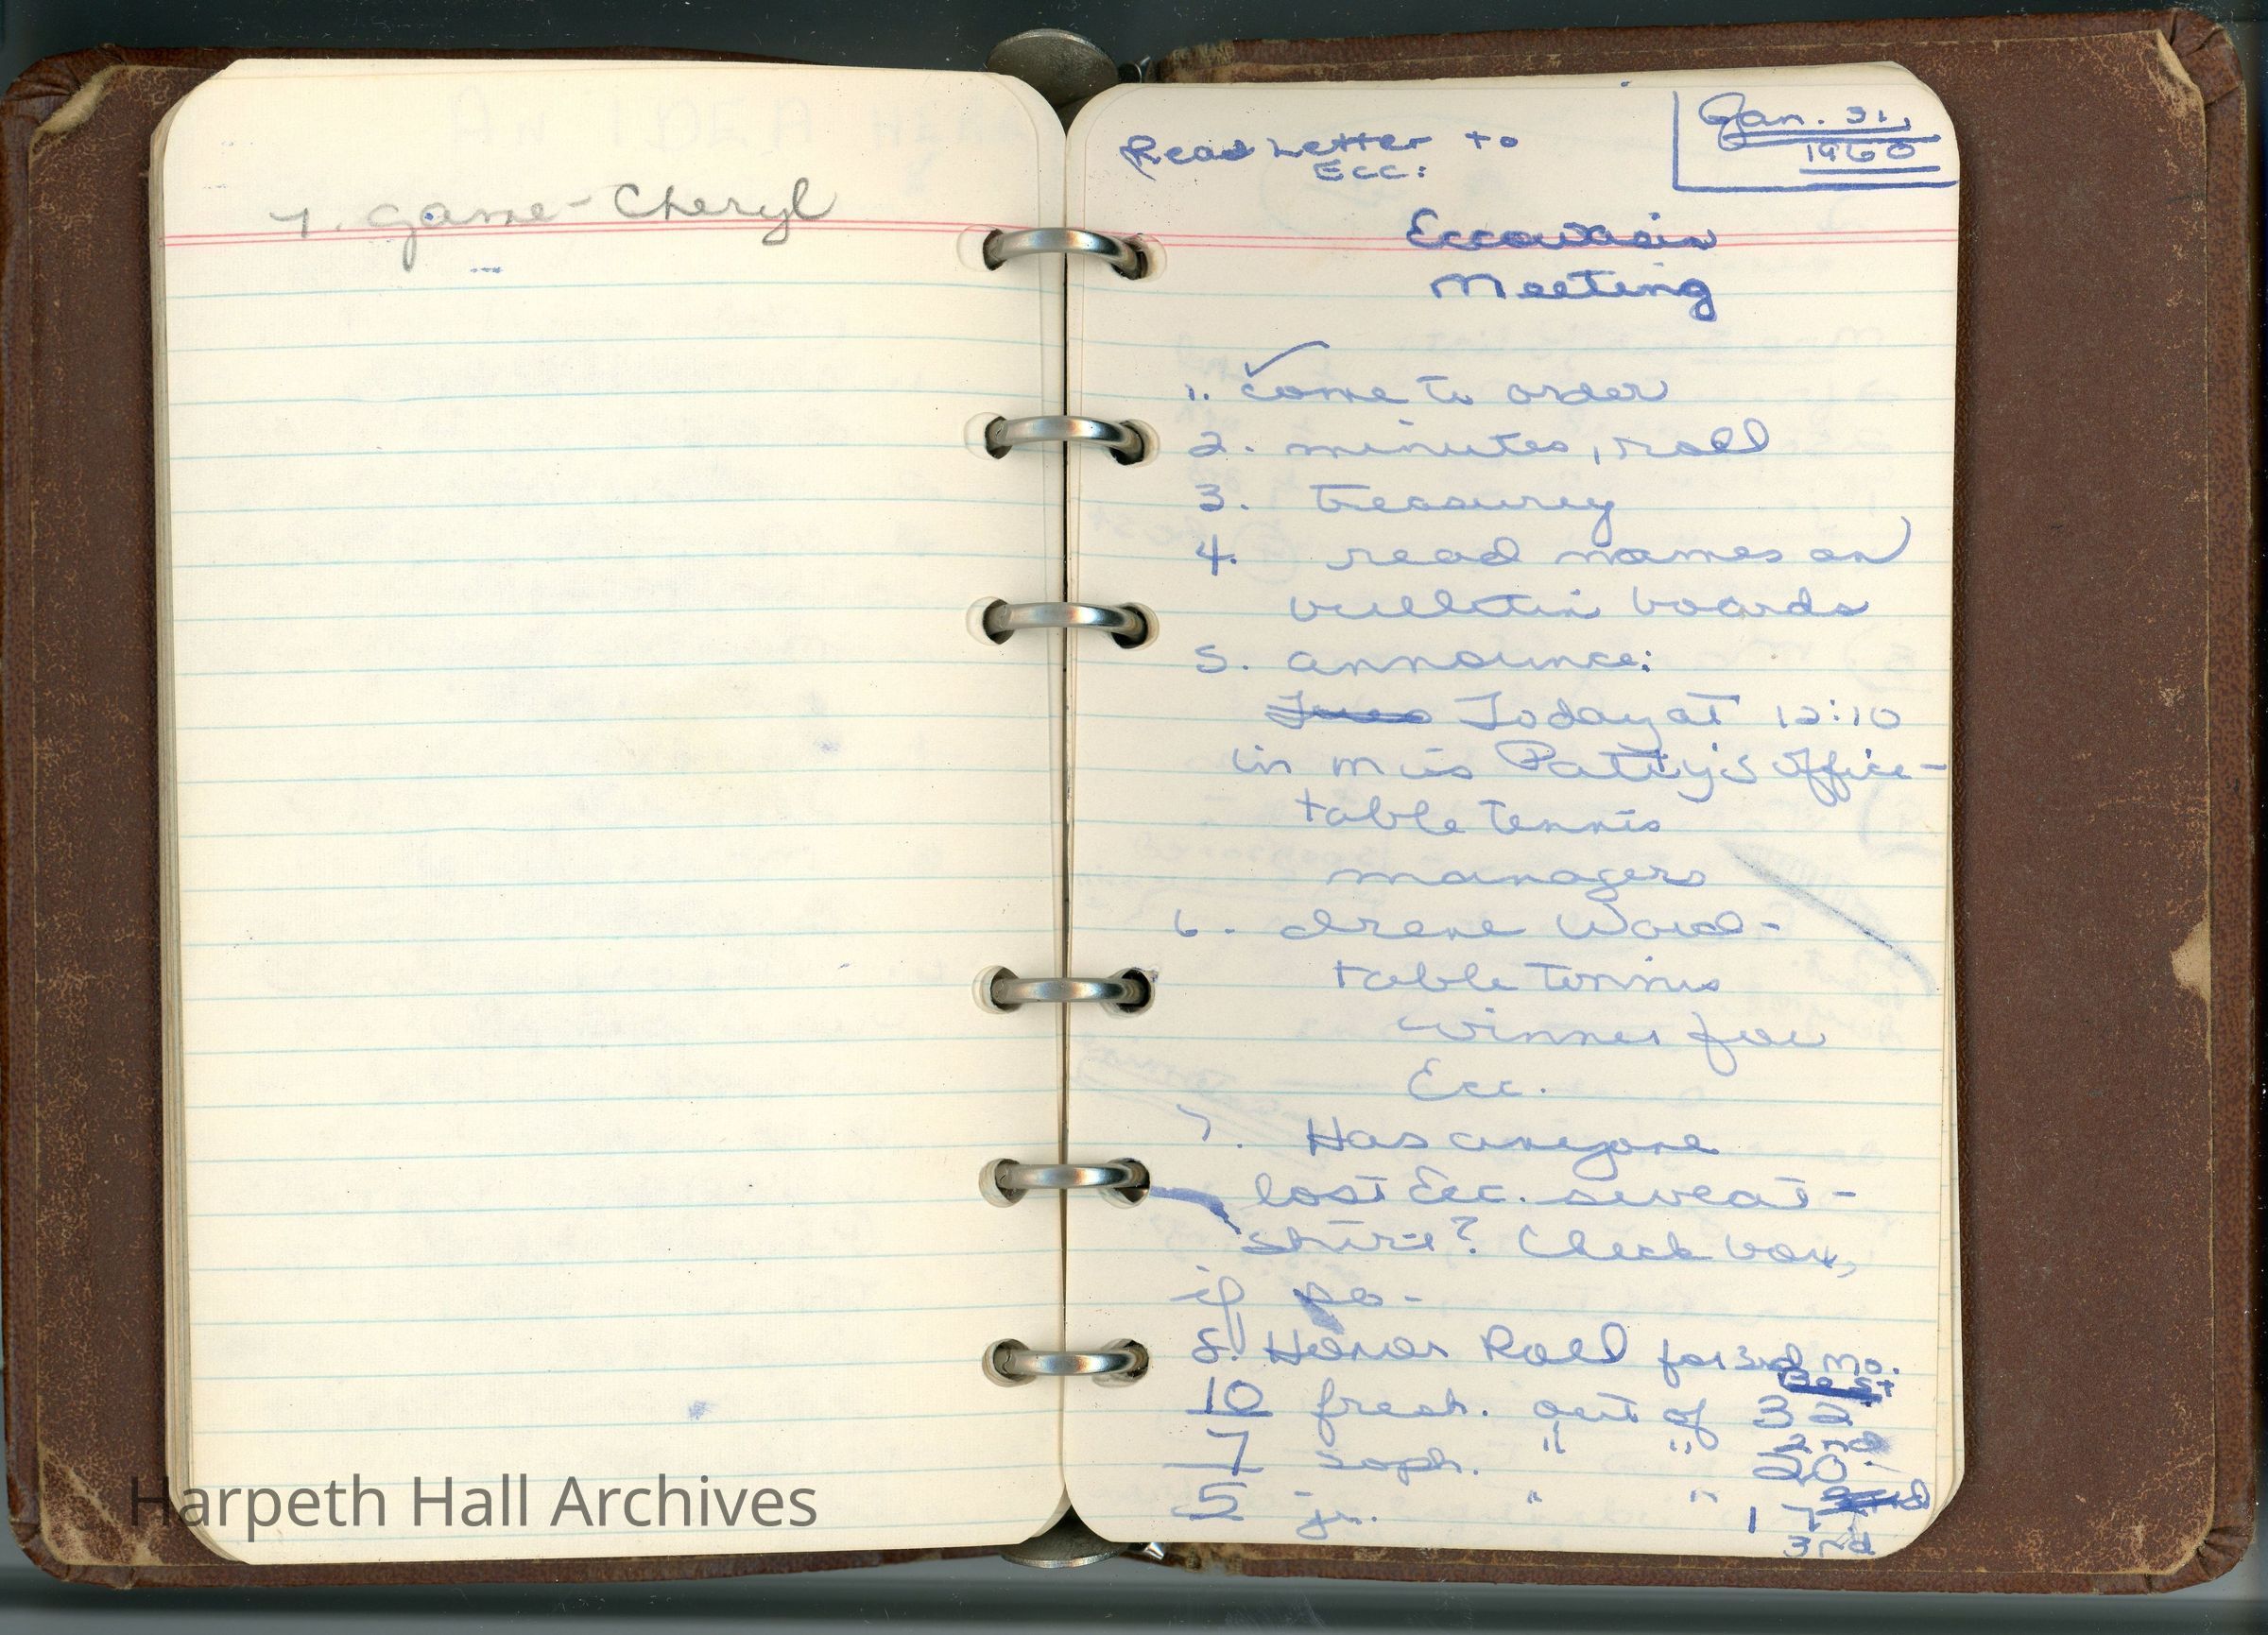 7. game - Cheryl
Harpeth Hall Archives
Jan. 31,
1960
Read Letter to
Ecc:
Eccowasin
Meeting
1. Come to order
2. minutes, roll
3. treasurey
4. read names on
bulletin boards
5. announce:
Today at 12:10
in Miss Patty's office -
table tennis
managers
6. Irene Ward -
table tennis
winner for
Ecc.
7. Has anyone
lost Ecc. sweat-
shirt? Check box,
if so -
8. Honor Roll for 3rd mo.
Best
10 fresh. out of 32
2nd
7 soph. " " 20
5 jr. " " 17
3rd